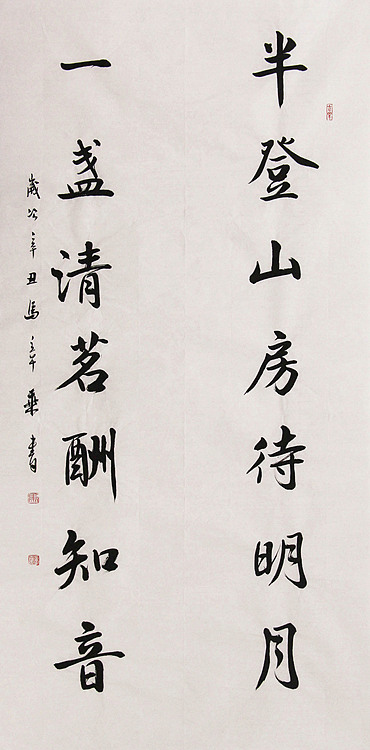 半登山房待明月
一盏清茗酬知音
歲次辛丑馬
書